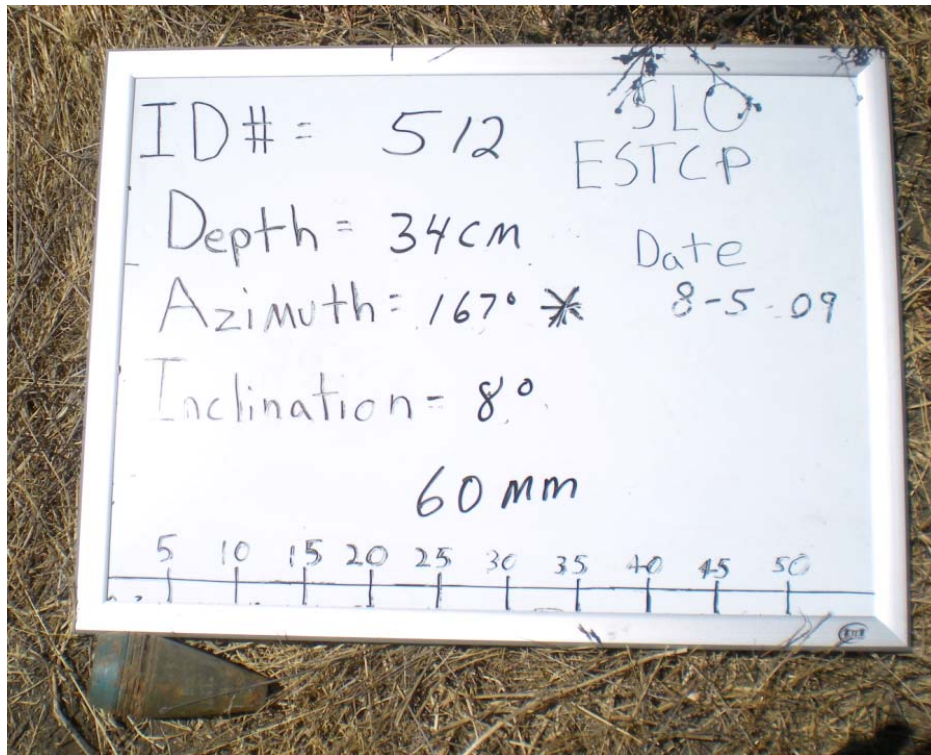 ID# = 512
SLO
ESTCP
Depth = 34cm
Date
Azimuth = 167° *
8-5-09
Inclination = 8°
60mm
5 10 15 20 25 30 35 40 45 50